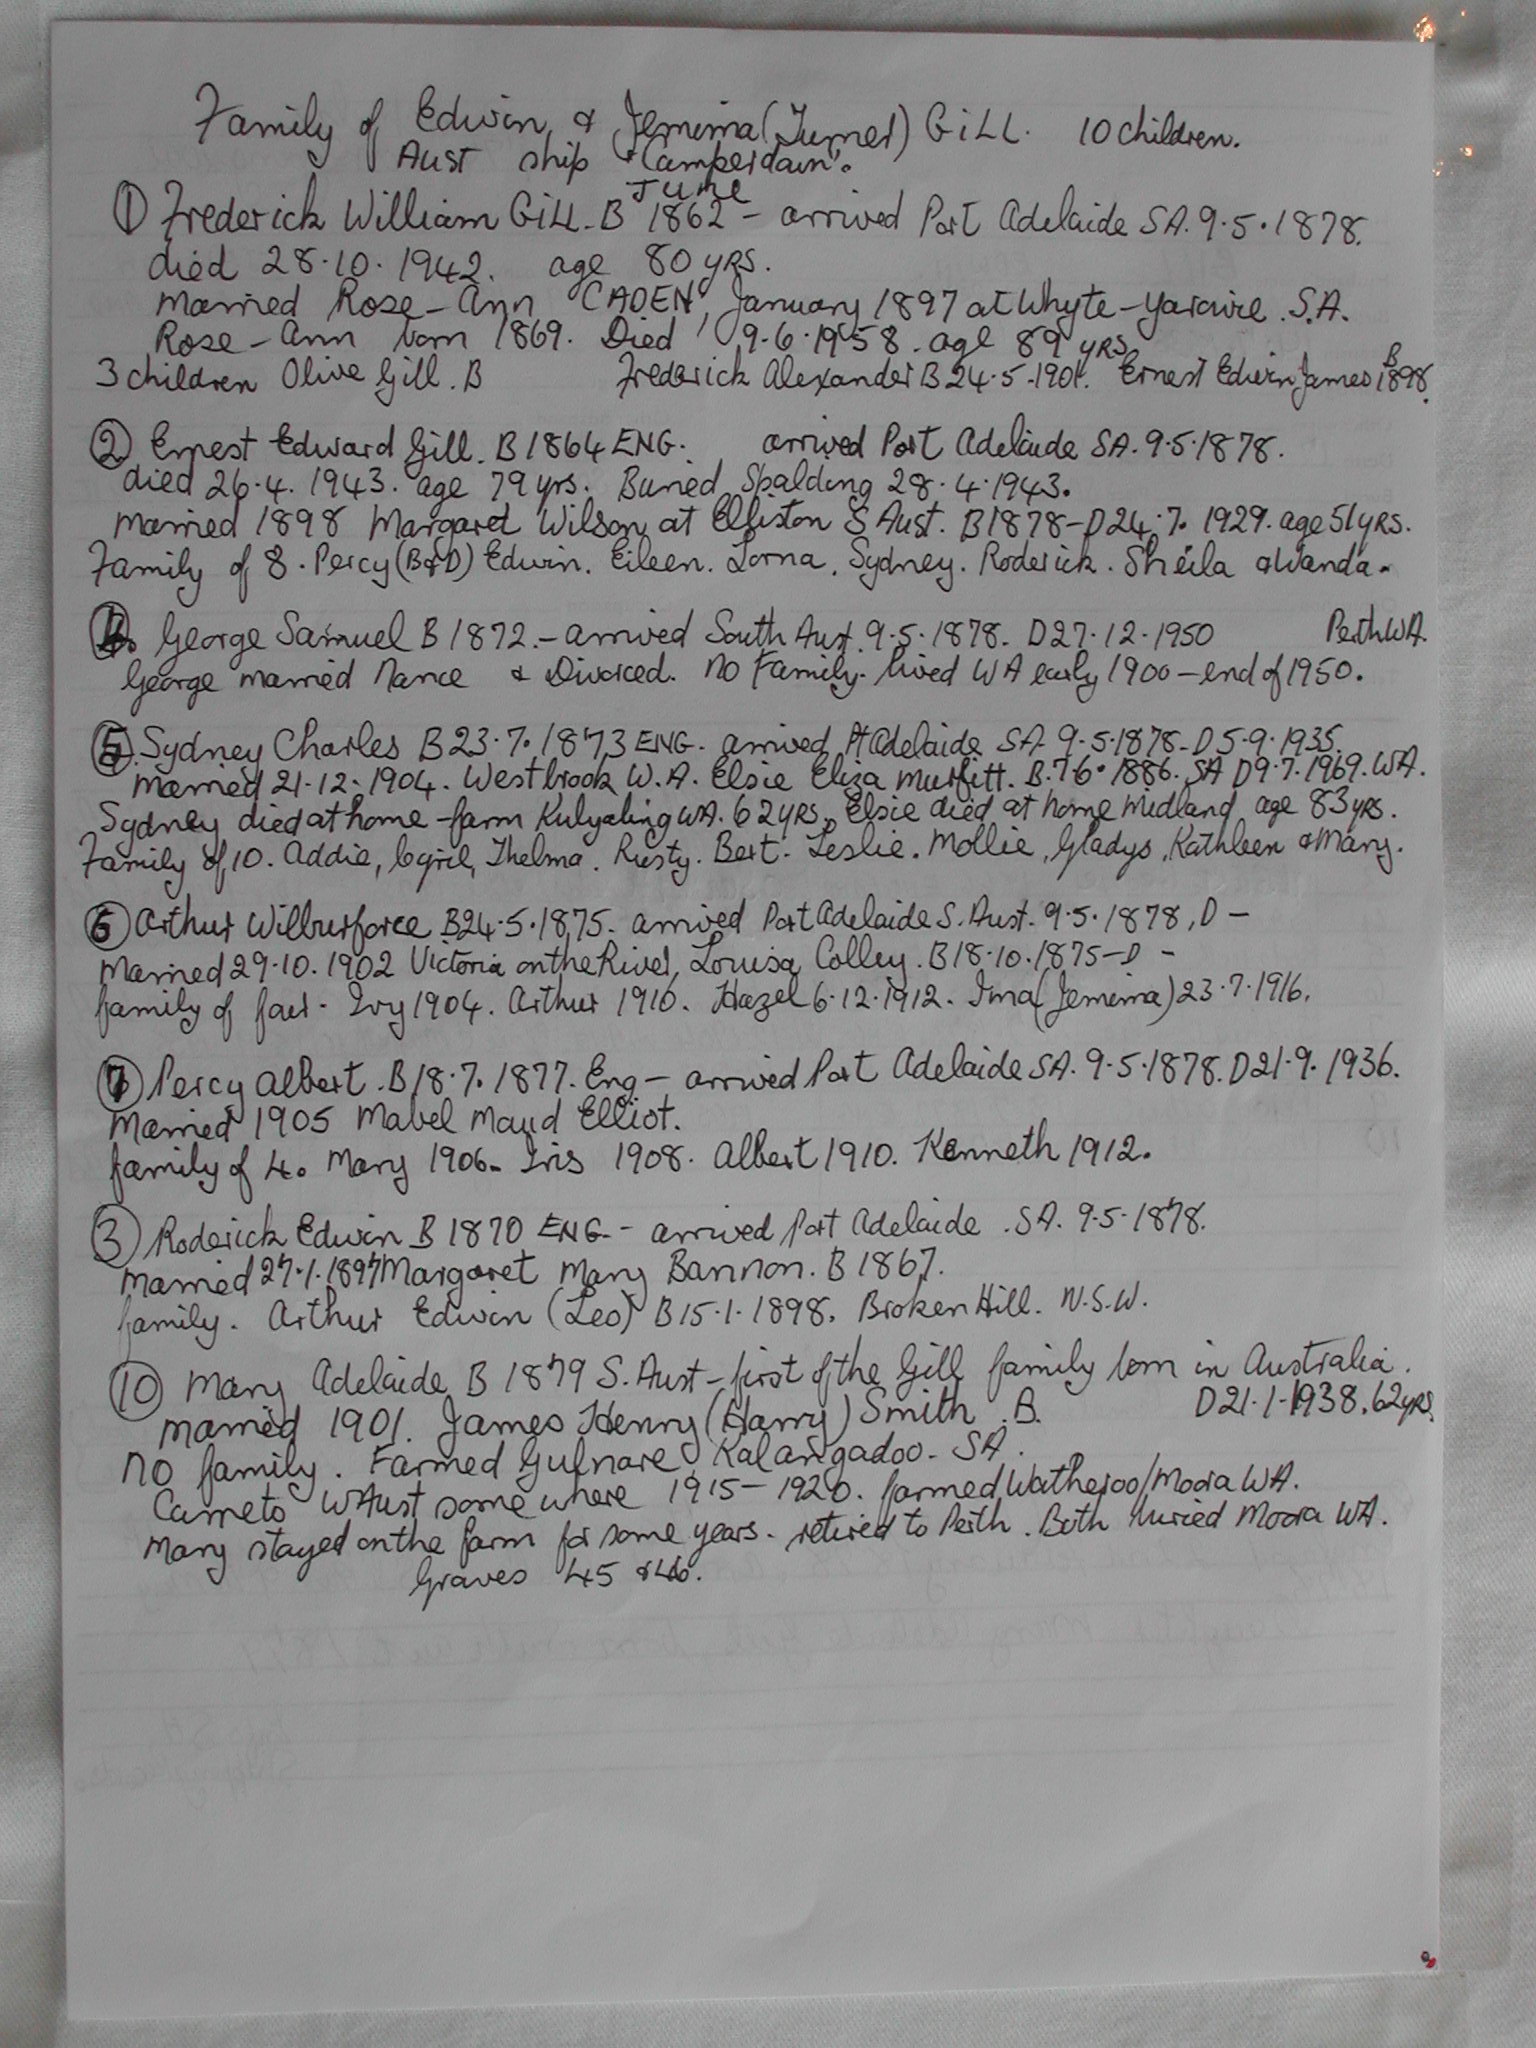 Family of Edwin & Jemima (Turner) GILL. 10 children.
Aust ship "Camperdown".
① Frederick William GILL. B June 1862 - arrived Port Adelaide SA. 9.5.1878.
died 28.10.1942. age 80 yrs.
married Rose-Ann CADEN, January 1897 at Whyte-Yarcowie. S.A.
Rose-Ann born 1869. Died 9.6.1958. age 89 yrs
3 children Olive Gill. B Frederick Alexander B 24.5.1901. Ernest Edwin James B 1898.
② Ernest Edward Gill. B 1864 ENG. arrived Port Adelaide SA. 9.5.1878.
died 26.4.1943. age 79 yrs. Buried Spalding 28.4.1943.
married 1898 Margaret Wilson at Elliston S Aust. B 1878 - D 24.7.1929. age 51 yrs.
Family of 8. Percy (B&D) Edwin. Eileen. Lorna. Sydney. Roderick. Sheila & Wanda.
④ George Samuel B 1872. - arrived South Aust. 9.5.1878. D 27.12.1950 Perth WA.
George married Nance & Divorced. no Family. lived WA early 1900 - end of 1950.
⑤ Sydney Charles B 23.7.1873 ENG. arrived Pt Adelaide SA. 9.5.1878. D 5.9.1935.
married 21.12.1904. Westbrook W.A. Elsie Eliza Murfitt. B. 7.6.1886. SA D 9.7.1969. WA.
Sydney died at home - farm Kulyaling WA. 62 yrs. Elsie died at home Midland age 83 yrs.
Family of 10. Addie, Cyril, Thelma. Rusty. Bert. Leslie. Mollie, Gladys, Kathleen & Mary.
⑥ Arthur Wilburforce B 24.5.1875. arrived Port Adelaide S. Aust. 9.5.1878, D -
married 29.10.1902 Victoria on the River, Louisa Colley. B 18.10.1875 - D -
family of four. Ivy 1904. Arthur 1910. Hazel 6.12.1912. Ima (Jemima) 23.7.1916.
⑦ Percy Albert. B 18.7.1877. Eng - arrived Port Adelaide SA. 9.5.1878. D 21.9.1936.
married 1905 Mabel Maud Elliot.
family of 4. Mary 1906. Iris 1908. Albert 1910. Kenneth 1912.
③ Roderick Edwin B 1870 ENG - arrived Port Adelaide. SA. 9.5.1878.
married 27.1.1897 Margaret Mary Bannon. B 1867.
family. Arthur Edwin (Leo) B 15.1.1898. Broken Hill. N.S.W.
⑩ Mary Adelaide B 1879 S. Aust - first of the Gill family born in Australia.
married 1901. James Henry (Harry) Smith. B. D 21.1.1938. 62 yrs
no family. Farmed Gulnare Kalangadoo. SA.
Came to W Aust some where 1915 - 1920. farmed Watheroo/Moora WA.
Mary stayed on the farm for some years. retired to Perth. Both buried Moora WA.
Graves 45 & 46.